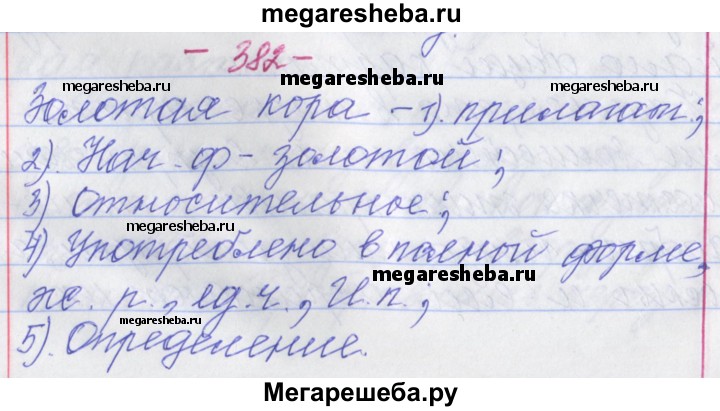 megaresheba.ru
- 382 -
megaresheba.ru megaresheba.ru megaresheba.ru
Золотая кора - 1). прилагат.;
2). Нач. ф - золотой;
3) Относительное;
megaresheba.ru
4) Употреблено в полной форме,
megaresheba.ru
ж. р., ед. ч., И. п.;
megaresheba.ru
5). Определение.
Мегарешеба.ру